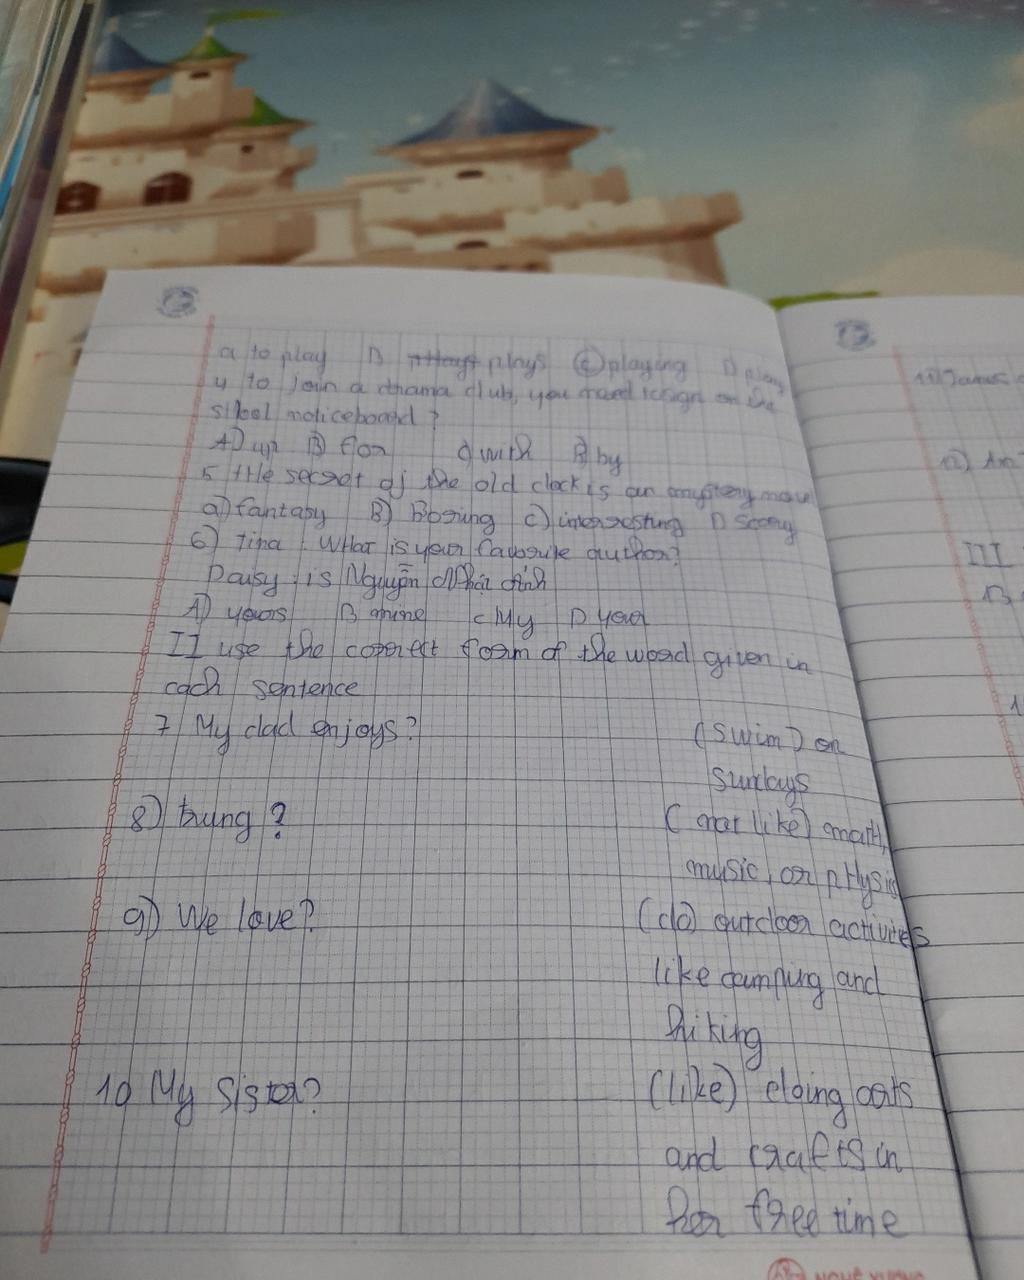 a to play B plays C playing D play
4 to join a drama club, you need to sign on the
school noticeboard?
A) up B) for C) with D) by
5 the secret of the old clock is an mystery
a) fantasy B) Boring C) interesting D scary
6) Tina: What is your favourite author?
Daisy: is Nguyễn Nhật Ánh
A) yours B mine C My D your
II use the correct form of the word given in
each sentence
7 My dad enjoys? (swim) on
Sundays
8) trung? (not like) math,
music, or physis
9) We love? (do) outdoor activities
like camping and
hiking
10 My sister? (like) doing arts
and crafts in
her free time
11) James
12) An
III
13
1